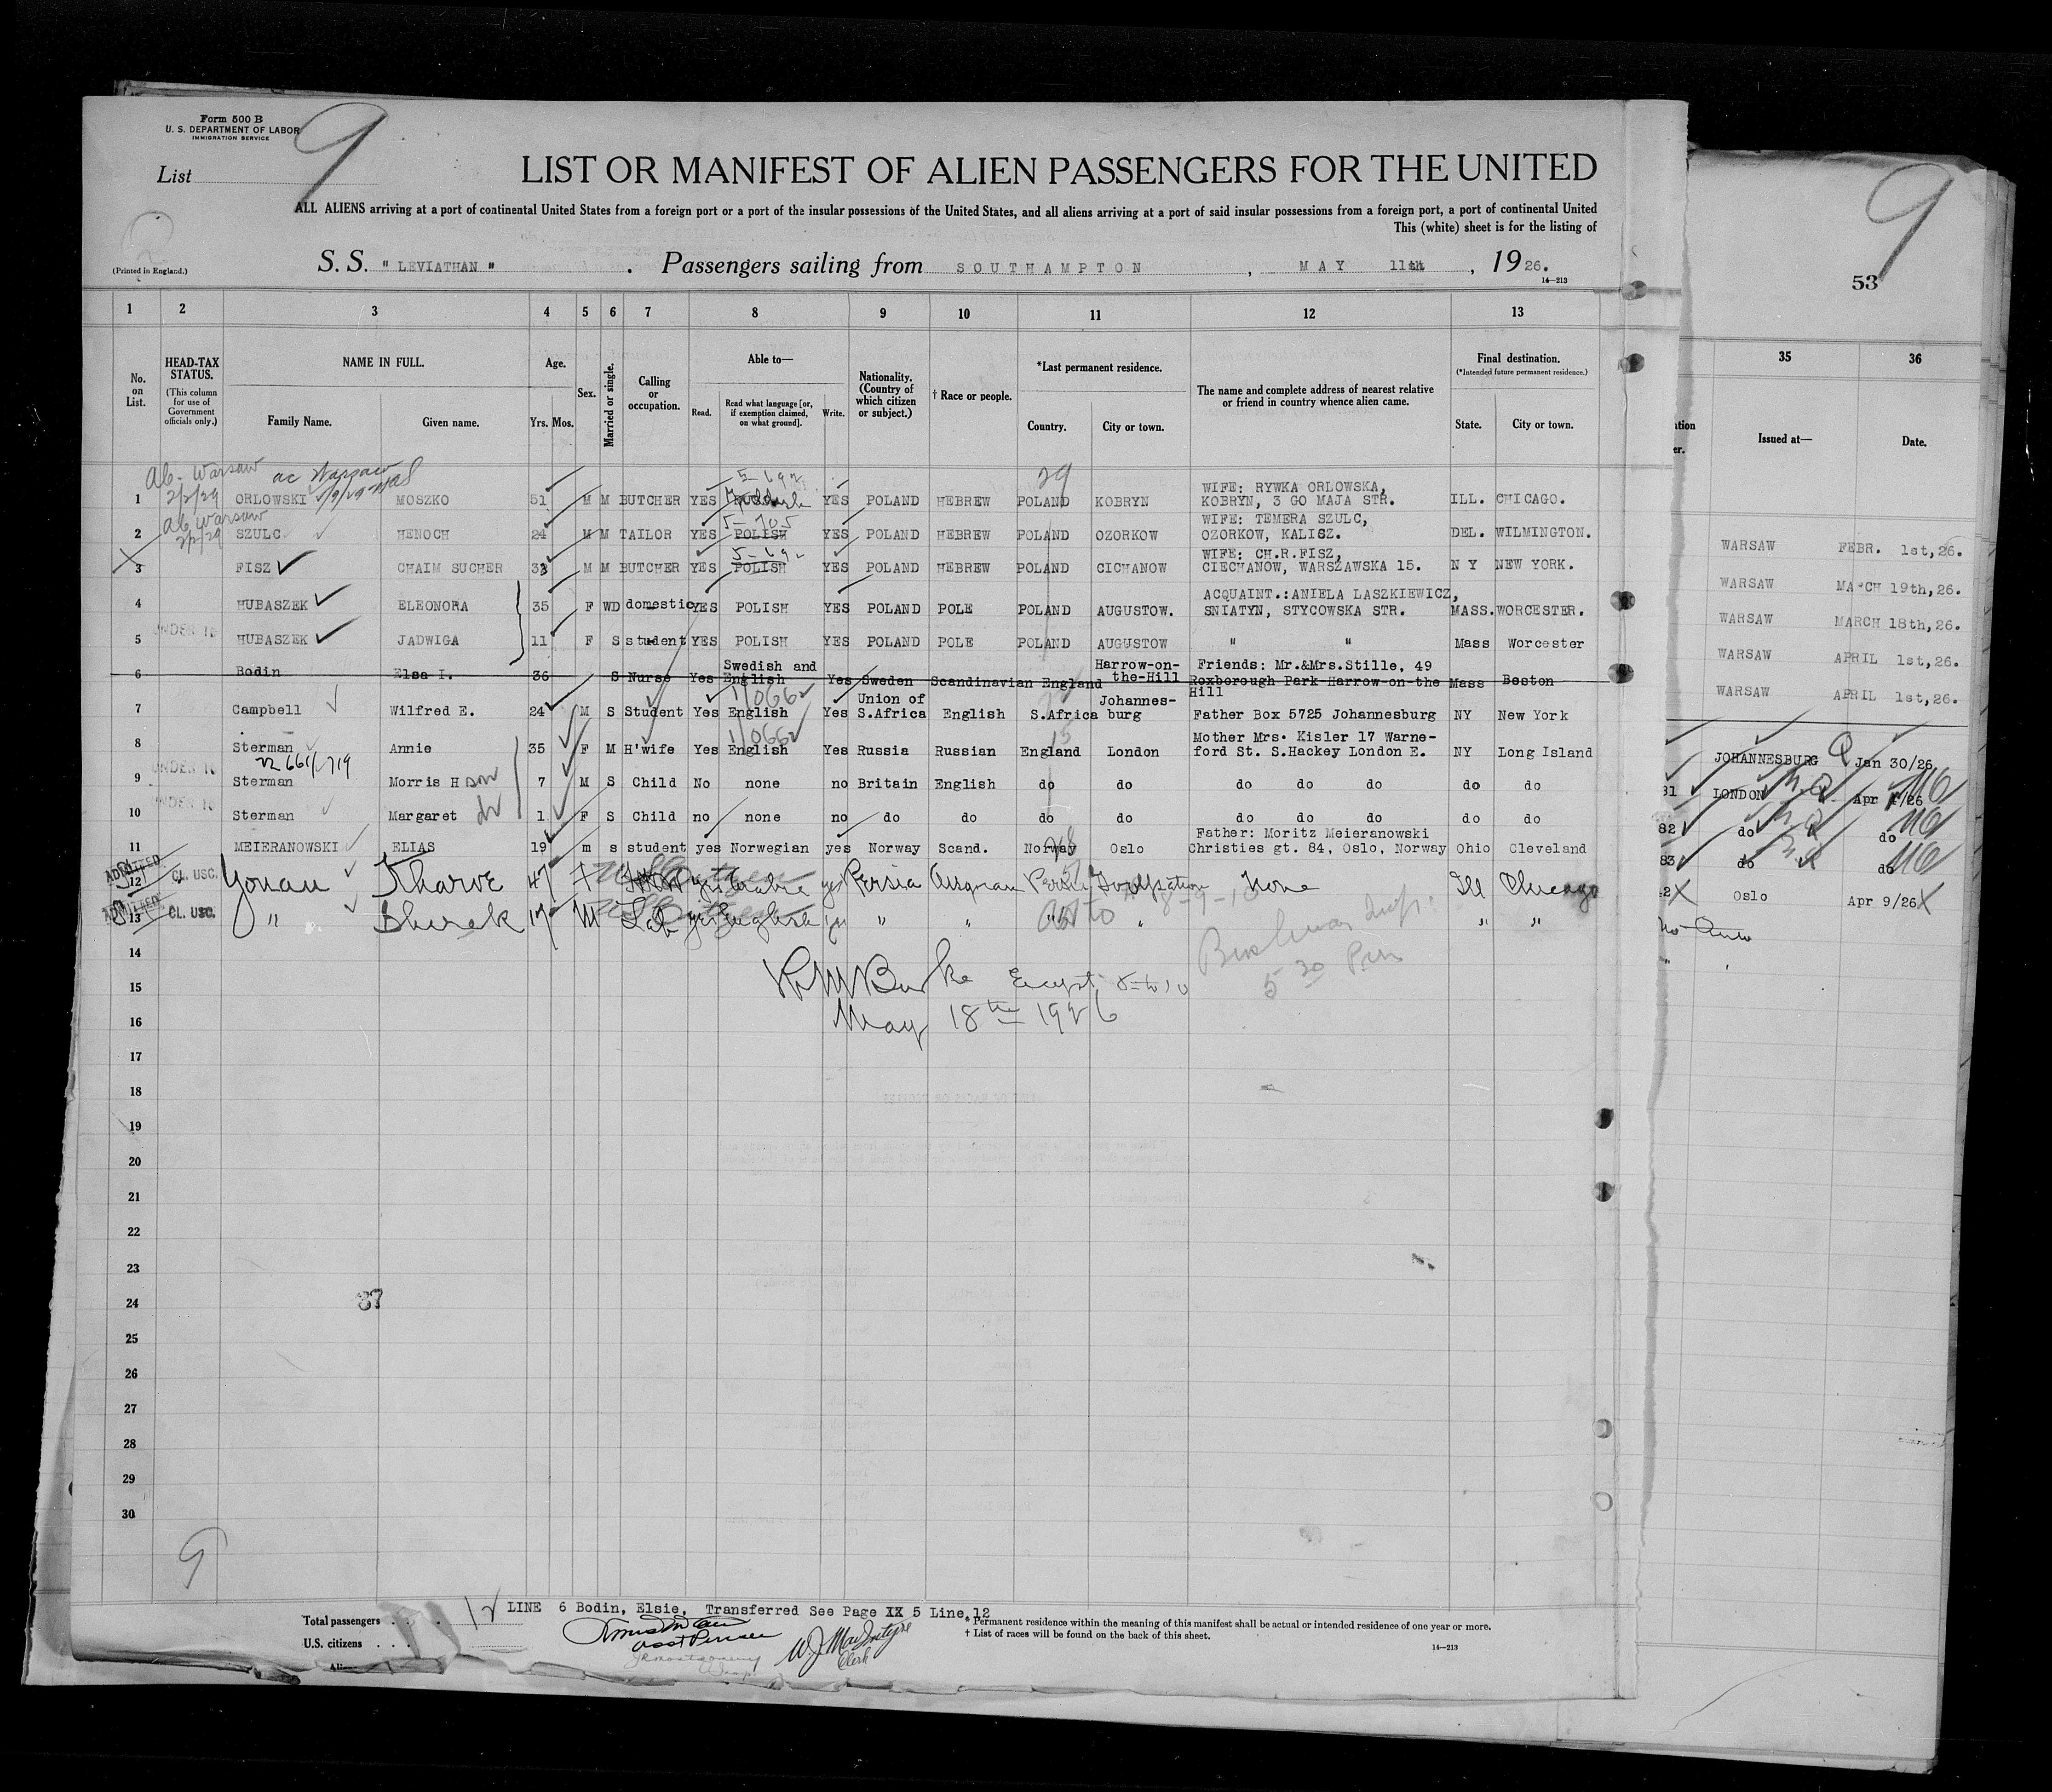 Form 500 B
U. S. DEPARTMENT OF LABOR
IMMIGRATION SERVICE
9
List
LIST OR MANIFEST OF ALIEN PASSENGERS FOR THE UNITED
ALL ALIENS arriving at a port of continental United States from a foreign port or a port of the insular possessions of the United States, and all aliens arriving at a port of said insular possessions from a foreign port, a port of continental United
This (white) sheet is for the listing of
(Printed in England.)
S. S. "LEVIATHAN" . Passengers sailing from SOUTHAMPTON , MAY 11th , 1926.
14—213
1 2 3 4 5 6 7 8 9 10 11 12 13
No. on List. HEAD-TAX STATUS. (This column for use of Government officials only.) NAME IN FULL. Family Name. Given name. Age. Yrs. Mos. Sex. Married or single. Calling or occupation. Able to— Read. Read what language [or, if exemption claimed, on what ground]. Write. Nationality. (Country of which citizen or subject.) † Race or people. *Last permanent residence. Country. City or town. The name and complete address of nearest relative or friend in country whence alien came. Final destination. (*Intended future permanent residence.) State. City or town.
Ab- Warsaw ac Warsaw 5-692 29
2/2/29
1 ORLOWSKI MOSZKO 51 M M BUTCHER YES YES POLAND HEBREW POLAND KOBRYN WIFE: RYWKA ORLOWSKA, KOBRYN, 3 GO MAJA STR. ILL. CHICAGO.
Ab Warsaw 5-705
2/2/29
2 SZULC HENOCH 24 M M TAILOR YES POLISH YES POLAND HEBREW POLAND OZORKOW WIFE: TEMERA SZULC, OZORKOW, KALISZ. DEL. WILMINGTON.
5-692
3 FISZ CHAIM SUCHER 33 M M BUTCHER YES POLISH YES POLAND HEBREW POLAND CICHANOW WIFE: CH.R.FISZ, CIECHANOW, WARSZAWSKA 15. N Y NEW YORK.
4 HUBASZEK ELEONORA 35 F WD domestic YES POLISH YES POLAND POLE POLAND AUGUSTOW. ACQUAINT.:ANIELA LASZKIEWICZ, SNIATYN, STYCOWSKA STR. MASS. WORCESTER.
UNDER 16
5 HUBASZEK JADWIGA 11 F S student YES POLISH YES POLAND POLE POLAND AUGUSTOW " " Mass Worcester
6 Bodin Elsa I. 36 S Nurse Yes Swedish and English Yes Sweden Scandinavian England Harrow-on-the-Hill Friends: Mr.&Mrs.Stille, 49 Roxborough Park-Harrow-on-the Hill Mass Boston
1/0662
7 Campbell Wilfred E. 24 M S Student Yes English Yes Union of S.Africa English S.Africa Johannesburg Father Box 5725 Johannesburg NY New York
1/0662 15
8 Sterman Annie 35 F M H'wife Yes English Yes Russia Russian England London Mother Mrs. Kisler 17 Warneford St. S.Hackey London E. NY Long Island
UNDER 16
9 Sterman Morris H son 7 M S Child No none no Britain English do do do do do do do
UNDER 16
10 Sterman Margaret 1 F S Child no none no do do do do do do do do do
11 MEIERANOWSKI ELIAS 19 m s student yes Norwegian yes Norway Scand. Norway Oslo Father: Moritz Meieranowski Christies gt. 84, Oslo, Norway Ohio Cleveland
ADMITTED
12 CL. USC. Yonan 47 F yes yes Persia Persia None Ill Chicago
ADMITTED
13 CL. USC. " 17 M Lab yes English yes " " " " " "
14
Burke Except 8 to 10
15
5 30 Pm
16 May 18th 1926
17
18
19
20
21
22
23
24 37
25
26
27
28
29
30
9
Total passengers 12 LINE 6 Bodin, Elsie, Transferred See Page XX 5 Line 12
U.S. citizens
Asst Purser
W.J. MacIntyre
Clerk
* Permanent residence within the meaning of this manifest shall be actual or intended residence of one year or more.
† List of races will be found on the back of this sheet.
14—213
9
53
35 36
Issued at— Date.
WARSAW FEBR. 1st,26.
WARSAW MARCH 19th,26.
WARSAW MARCH 18th,26.
WARSAW APRIL 1st,26.
WARSAW APRIL 1st,26.
JOHANNESBURG Jan 30/26
81 LONDON Apr 1/26
82 do do
83 do do
Oslo Apr 9/26